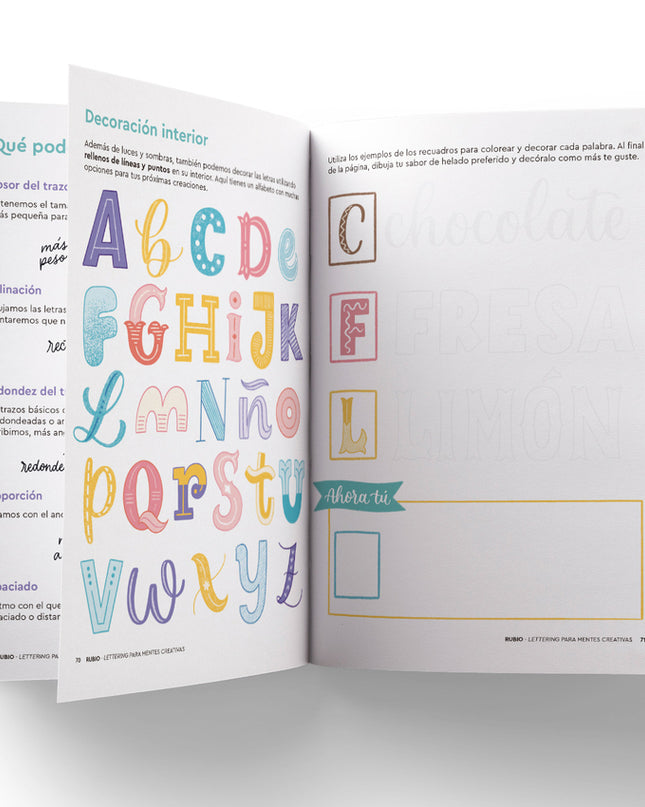 Qué pod
osor del trazo
tenemos el tam
ás pequeña para
más
peso
linación
ujamos las letras
ntaremos que n
rec
dondez del t
trazos básicos
dondeadas o ar
ribimos, más an
redonde
oporción
amos con el anc
a
paciado
tmo con el que
aciado o distan
RUBIO · LETTERING PA
Decoración interior
Además de luces y sombras, también podemos decorar las letras utilizando
rellenos de líneas y puntos en su interior. Aquí tienes un alfabeto con muchas
opciones para tus próximas creaciones.
A b C D e
F G H i J K
L m N ñ o
p Q r S t U
V w x y z
70 RUBIO · LETTERING PARA MENTES CREATIVAS
Utiliza los ejemplos de los recuadros para colorear y decorar cada palabra. Al final
de la página, dibuja tu sabor de helado preferido y decóralo como más te guste.
C chocolate
F FRESA
L LIMÓN
Ahora tú
RUBIO · LETTERING PARA MENTES CREATIVAS 71